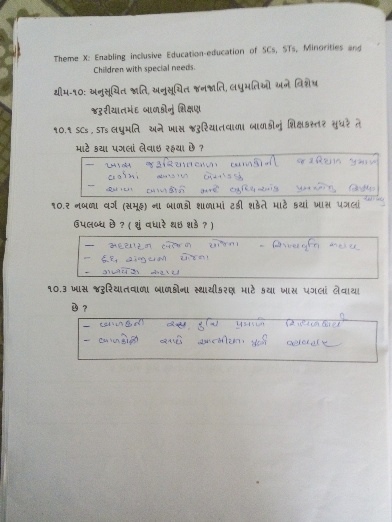 Theme X: Enabling inclusive Education-education of SCs, STs, Minorities and
Children with special needs.
થીમ-૧૦: અનુસૂચિત જાતિ, અનુસૂચિત જનજાતિ, લઘુમતિઓ અને વિશેષ
જરૂરીયાતમંદ બાળકોનું શિક્ષણ
૧૦.૧ SCs , STs લઘુમતિ અને ખાસ જરુરિયાતવાળા બાળકોનું શિક્ષકસ્તર સુધરે તે
માટે કયા પગલાં લેવાઇ રહયા છે ?
- ખાસ જરૂરિયાતવાળા બાળકોની જરૂરિયાત પ્રમાણે
૧૦.૨ નબળા વર્ગ (સમૂહ) ના બાળકો શાળામાં ટકી શકેતે માટે કયાં ખાસ પગલાં
ઉપલબ્ધ છે ? ( શું વધારે થઇ શકે ? )
- મધ્યાહન ભોજન યોજના - શિષ્યવૃત્તિ સહાય
- દૂધ સંજીવની યોજના
- ગણવેશ સહાય
૧૦.૩ ખાસ જરુરિયાતવાળા બાળકોના સ્થાયીકરણ માટે કયા ખાસ પગલાં લેવાયા
છે ?
- બાળકની રસ, રુચિ પ્રમાણે
- બાળકોની સાથે